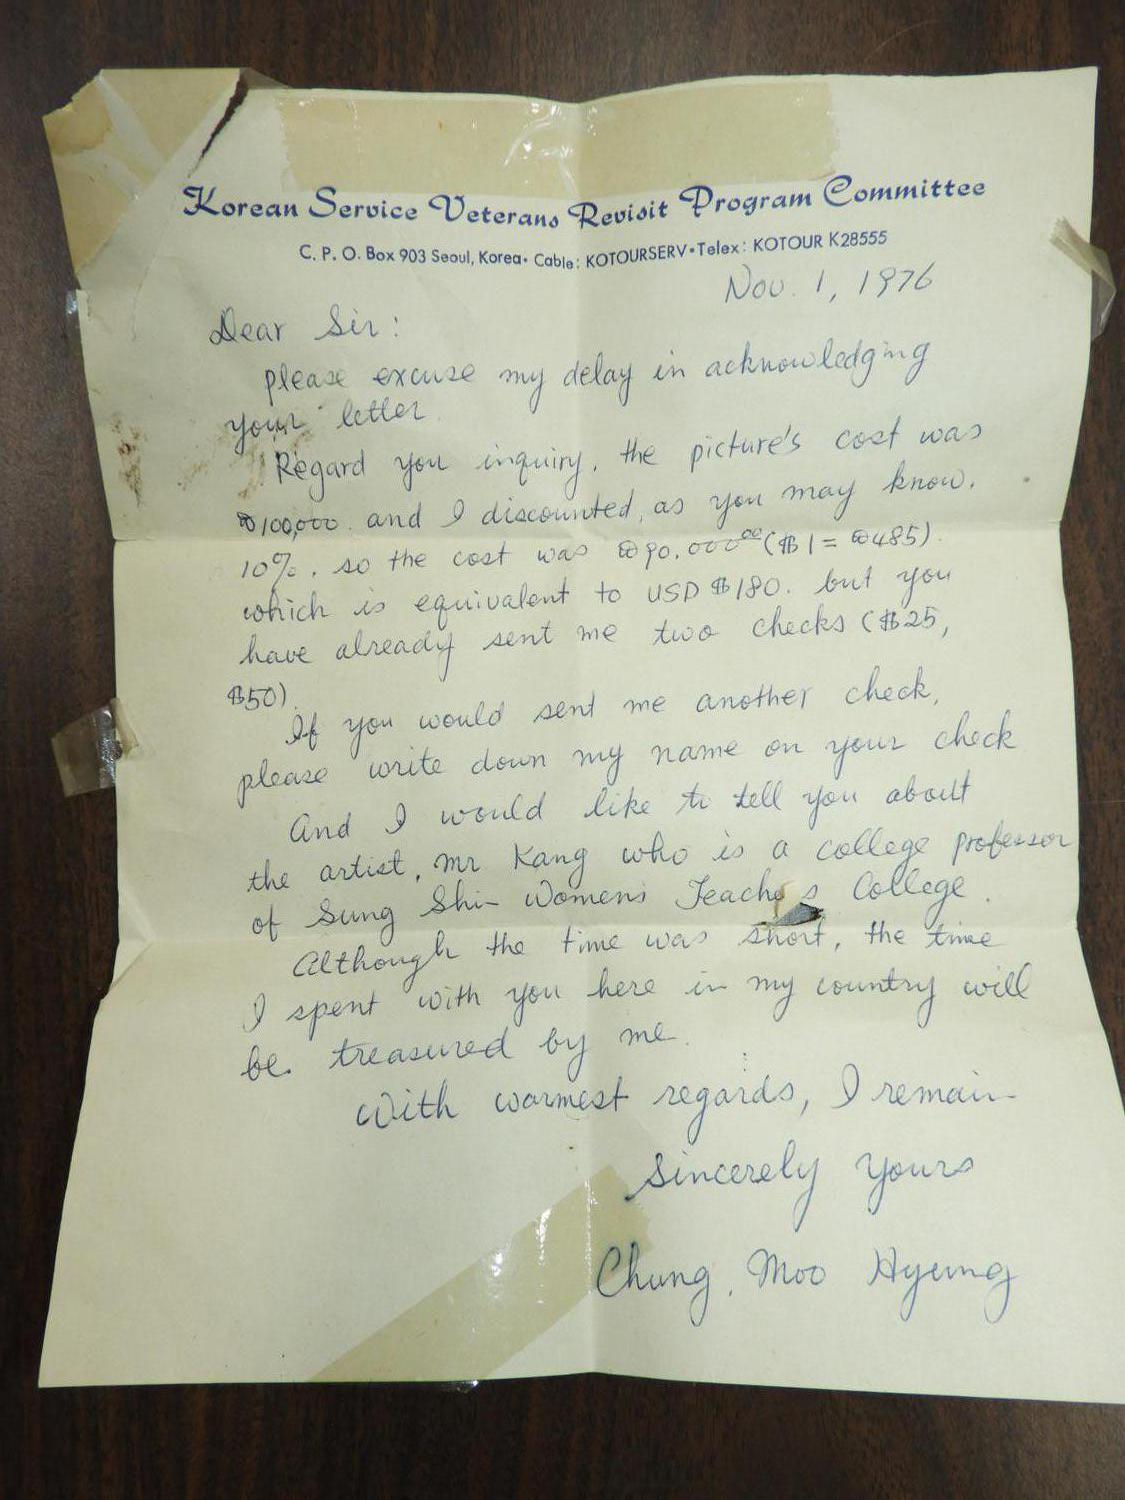 Korean Service Veterans Revisit Program Committee
C. P. O. Box 903 Seoul, Korea • Cable: KOTOURSERV • Telex: KOTOUR K28555
Nov. 1, 1976
Dear Sir:
please excuse my delay in acknowledging
your letter.
Regard you inquiry, the picture's cost was
₩100,000. and I discounted, as you may know.
10%. so the cost was ₩90.000⁰⁰ ($1 = ₩485).
which is equivalent to USD $180. but you
have already sent me two checks ($25,
$50).
If you would sent me another check,
please write down my name on your check
And I would like to tell you about
the artist, Mr Kang who is a college professor
of Sung Shin Womens Teache s College.
Although the time was short, the time
I spent with you here in my country will
be. treasured by me.
With warmest regards, I remain
Sincerely yours
Chung, Moo Hyung